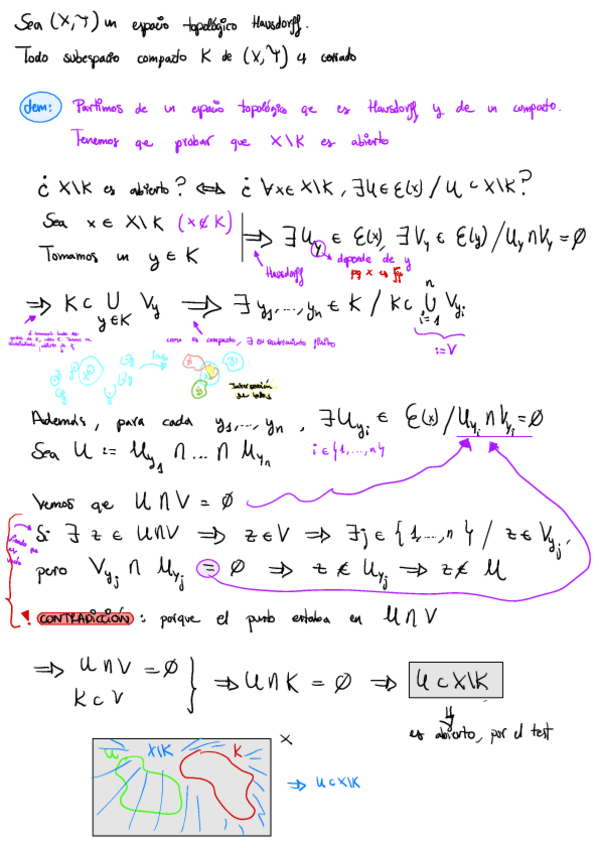 Sea (X,τ) un espacio topológico Hausdorff.
Todo subespacio compacto K de (X,τ) es cerrado
dem: Partimos de un espacio topológico qe es Hausdorff y de un compacto.
Tenemos qe probar que X\K es abierto
¿ X\K es abierto? ⟺ ¿ ∀x∈ X\K, ∃U∈ Ɛ(x) / U ⊂ X\K?
Sea x ∈ X\K (x∉K)
Tomamos un y ∈ K
⟹ ∃ U_y ∈ Ɛ(x), ∃ V_y ∈ Ɛ(y) / U_y ∩ V_y = ∅
Hausdorff
depende de y
⟹ K ⊂ ∪_{y∈K} V_y ⟹ ∃ y_1,...,y_n ∈ K / K ⊂ ∪_{i=1}^{n} V_{y_i}
:= V
como es compacto, ∃ su recubrimiento finito
Intersección de todos
Además, para cada y_1,...,y_n, ∃ U_{y_i} ∈ Ɛ(x) / U_{y_i} ∩ V_{y_i} = ∅
i ∈ {1,...,n}
Sea U := U_{y_1} ∩ ... ∩ U_{y_n}
Vemos que U ∩ V = ∅
Si ∃ z ∈ U∩V ⟹ z∈V ⟹ ∃j ∈ {1...,n} / z∈ V_{y_j},
pero V_{y_j} ∩ U_{y_j} = ∅ ⟹ z ∉ U_{y_j} ⟹ z ∉ U
! CONTRADICCIÓN: porque el punto estaba en U ∩ V
⟹ U ∩ V = ∅
K ⊂ V
} ⟹ U ∩ K = ∅ ⟹ U ⊂ X\K
es abierto, por el test
U X\K K X
⟹ U ⊂ X\K